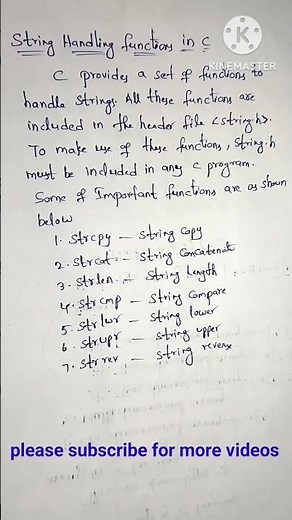 String Handling functions in C
KINEMASTER
C provides a set of functions to
handle strings. All these functions are
included in the header file <string.h>.
To make use of these functions, string.h
must be included in any C program.
Some of Important functions are as shown
below
1. Strcpy – String Copy
2. Strcat – String Concatenate
3. Strlen – String Length
4. Strcmp – String Compare
5. Strlwr – String lower
6. Strupr – String upper
7. Strrev – String reverse
please subscribe for more videos